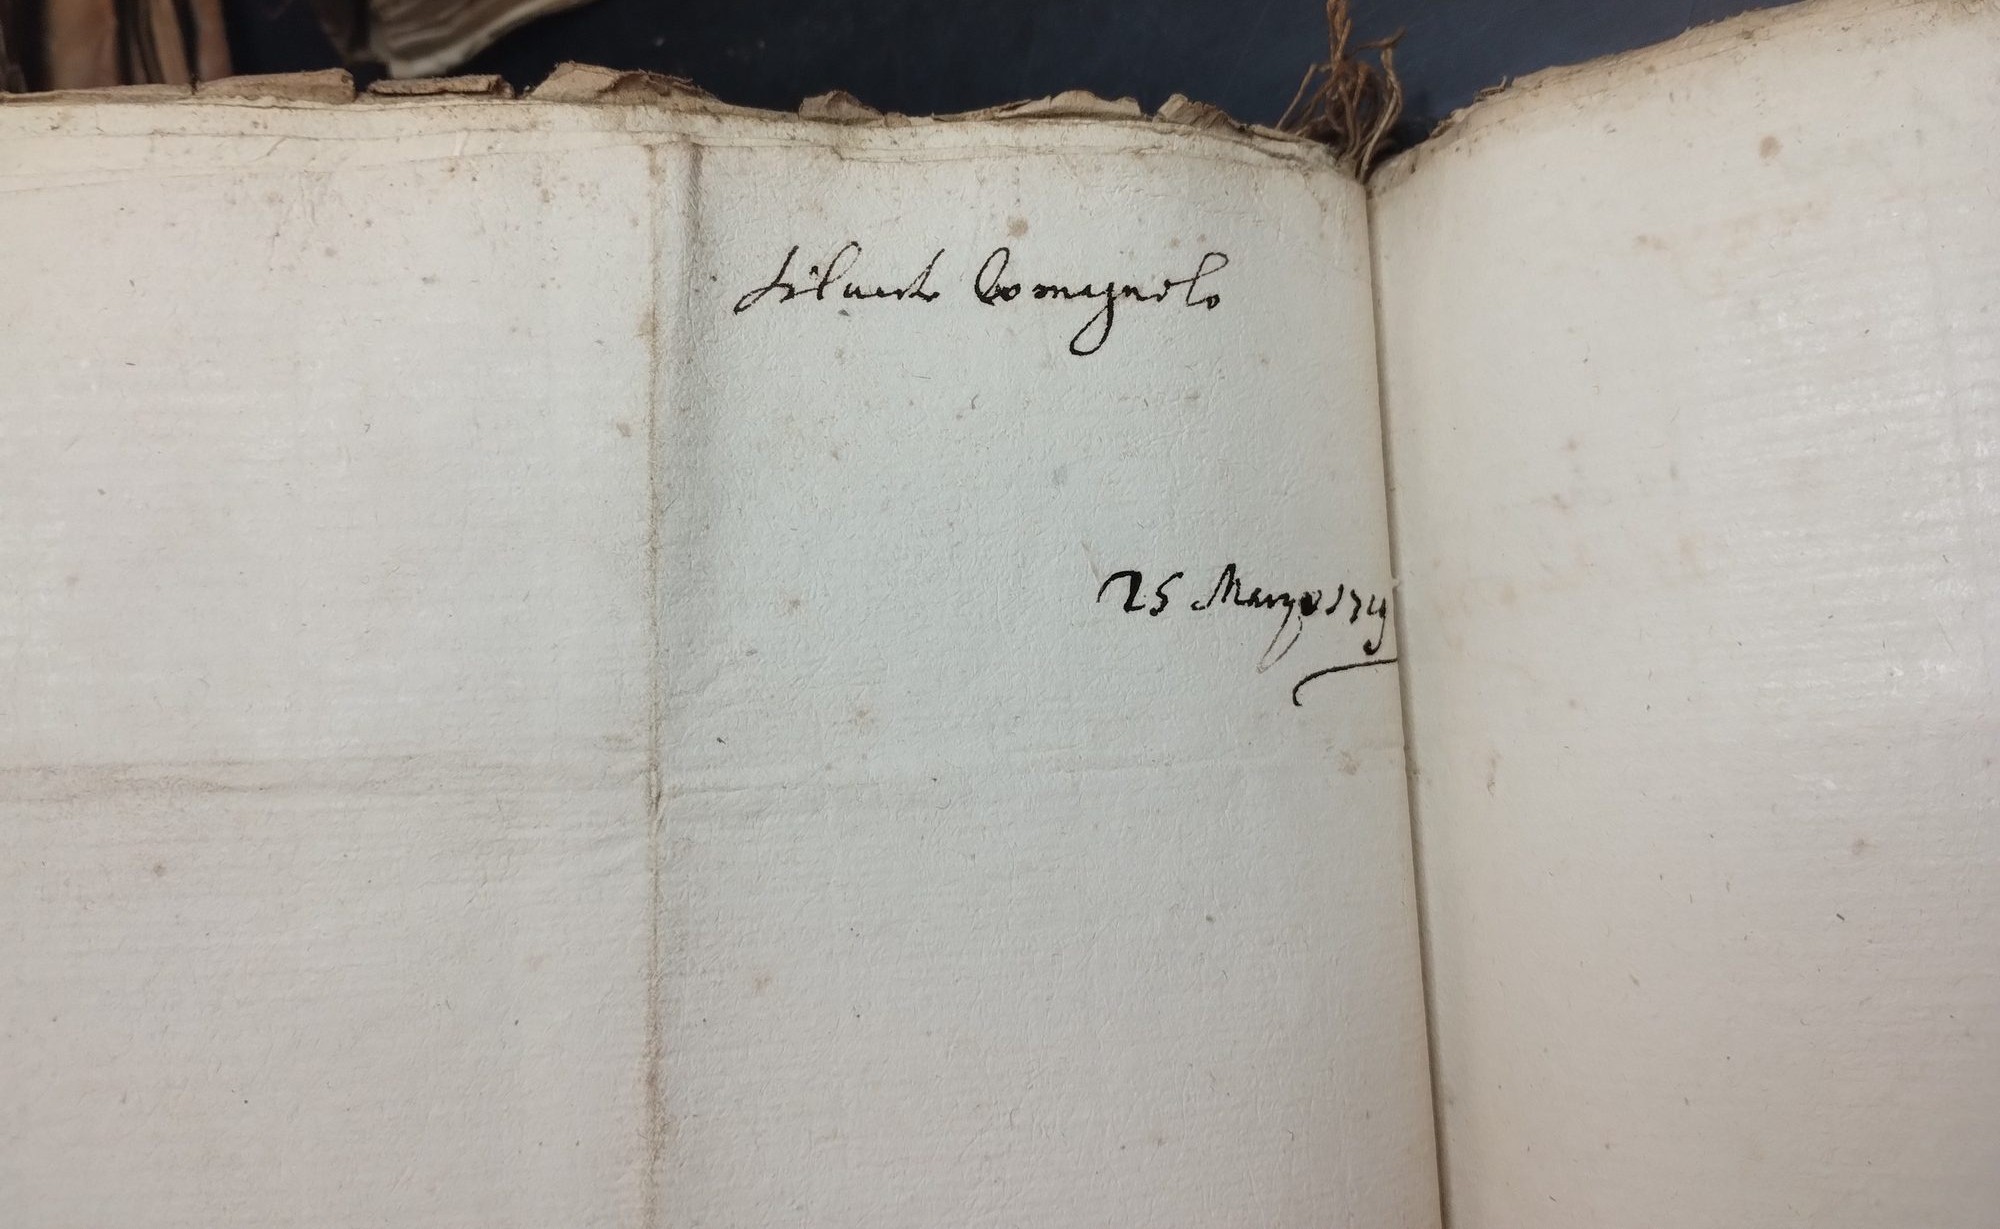 Silvestro Romagnolo
25 Marzo 171